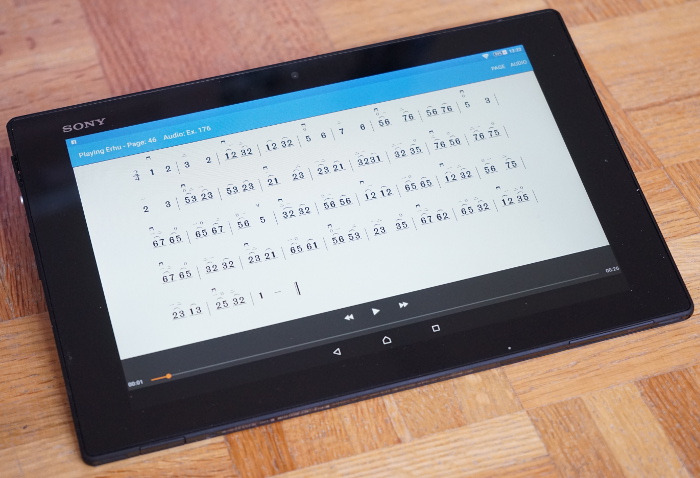 SONY
18:03
Playing Erhu - Page: 46 Audio: Ex. 176 PAGE AUDIO
2/4 1 2 | 3 2 | 12 32 | 12 32 | 5 6 | 7 6 | 56 76 | 56 76 | 5 3 |
2 3 | 53 23 | 53 23 | 21 23 | 23 21 | 3231 | 32 35 | 76 56 | 76 75 |
67 65 | 65 67 | 56 5 | 32 32 | 56 56 | 12 12 | 65 65 | 12 32 | 56 75 |
67 65 | 32 32 | 23 21 | 65 61 | 56 53 | 23 35 | 67 62 | 65 32 | 12 35 |
23 13 | 25 32 | 1 – ‖
00:01 00:26